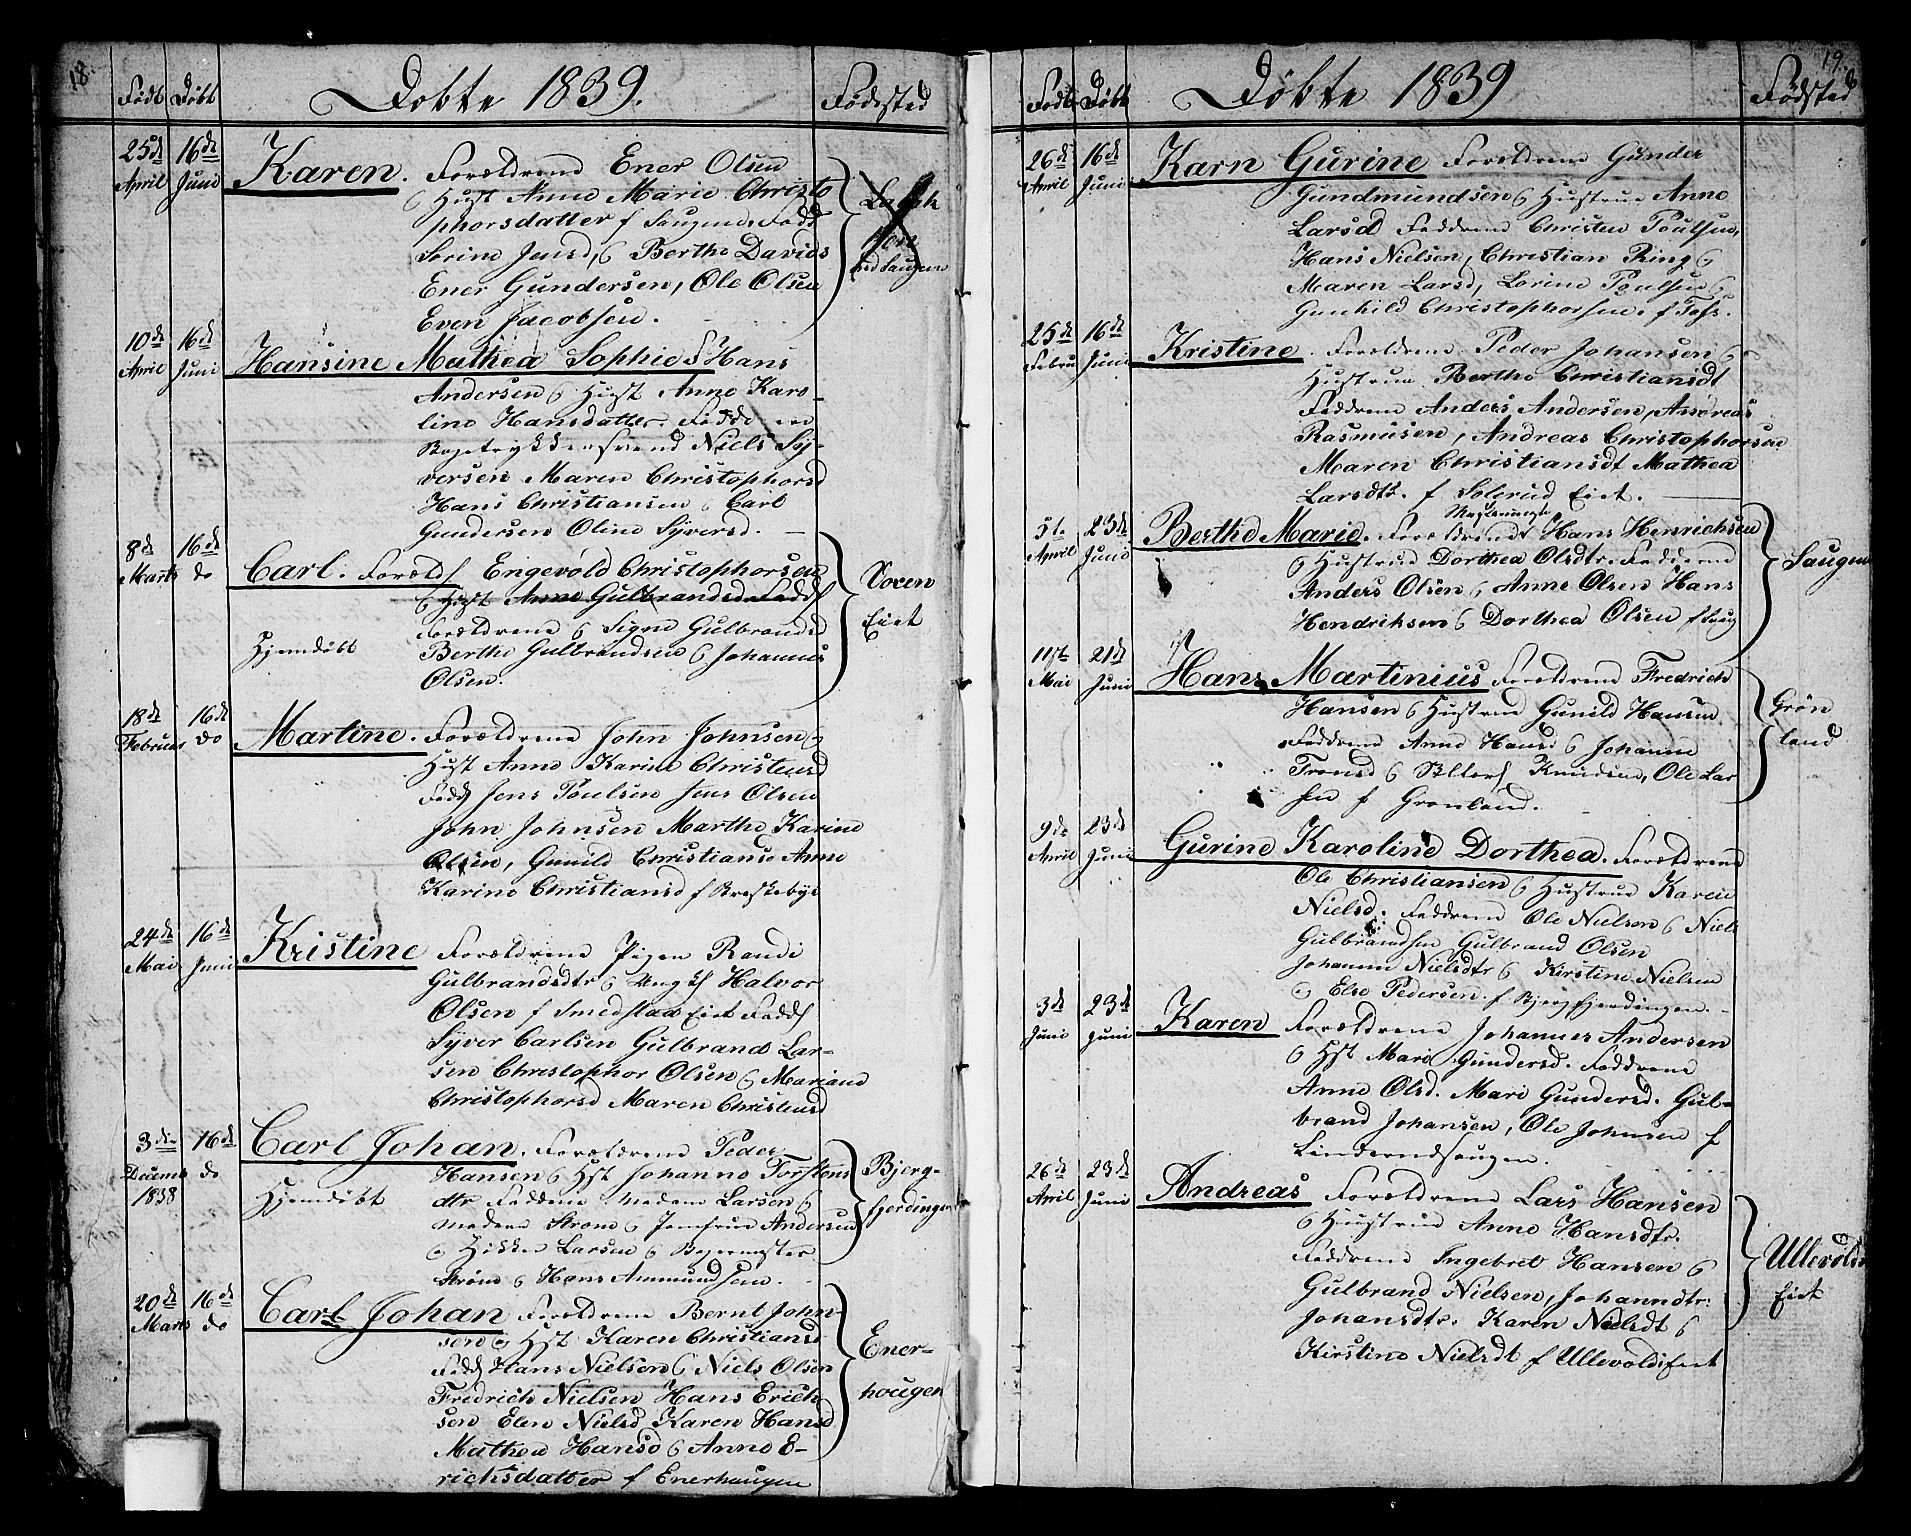 18.
Født Døbt Døbte 1839. Fødested
25de April 16de Juni
Karen. Forældrene Ener Olsen
& Hust Anne Marie Christo
phorsdatter f Saugene Fadd
Sorine Jensd, & Berthe Davids
Ener Gundersen, Ole Olsen
Even Jacobsen.
ved Saugene
10de April 16de Juni
Hansine Mathea Sophie F Hans
Andersen & Hust Anne Karo-
line Hansdatter. Fadde ere
Bogtrykkersvend Niels Sy-
versen Maren Christophorsd
Hans Christiansen & Carl
Gundersen Oline Syversd.
8de Marts 16de do
Carl. Foræld Engevold Christophorsen
& Hust Anne Gulbrandsd Fadd
Forældrene & Signe Gulbrandsd
Hjemdøbt
Berthe Gulbrandsen & Johannes
Olsen.
Voxen
Eiet
18de Februar 16de do
Martine. Forældrene John Johnsen &
Hust Anne Karine Christensd
Fadd Jens Poulsen Jens Olsen
John Johnsen Marthe Karine
Olsen, Gunild Christians. Anne
Karine Christiansd f Briskebye
24de Mai 16de Juni
Kristine Forældrene Pigen Randi
Gulbrandsdtr & Ungk Halvor
Olsen f Smedstad Eiet Fadd
Syver Carlsen Gulbrand Lar-
sen Christophor Olsen & Mariane
Christophorsd Maren Christensd
3die Decemb 1838 16de do
Carl Johan. Forældrene Peder
Hansen & Hst Johanne Torstens
Hjemdøbt
dtr Faddene Madam Larsen &
Madam Strøm & Jomfrue Andersen
Larsen &
Strøm & Hans Ammundsen.
Bjerg-
fjerdingen
20de Marts 16de do
Carl Johan Forældrene Bernt John-
sen & Hst Karen Christiansd
Fadd Hans Nielsen & Niels Olsen
Fredrich Nielsen Hans Erich
sen Elen Nielsd Karen Hansd
Mathea Hansd & Anne E-
richsdatter f Enerhaugen
Ener-
hougen
19.
Født Døbt Døbte 1839 Fødsted
26de April 16de Juni
Karn Gurine Forældrene Gunder
Gundmundsen & Hustrue Anne
Larsd Faddrene Christen Poulsen,
Hans Nielsen, Christian Ring &
Maren Larsd, Lorine Poulsen &
Gunhild Christophorsen. f Tofs.
25de Febru 16de Juni
Kristine. Forældrene Peder Johansen &
Hustrue Berthe Christiansdt
Faddrene Anders Andersen, Andreas
Rasmusen, Andreas Christophorsen
Maren Christiansdt Mathea
Larsdtr. f Solerud Eiet.
5te April 23de Juni
Berthe Marie. Forældrene Hans Henrichsen
& Hustrue Dorthea Olsdtr. Faddrene
Anders Olsen & Anne Olsen Hans
Hendriksen & Dorthea Olsen f Saug
Saugene
11te Mai 21de Juni
Hans Martinius Forældrene Fredrich
Hansen & Hustrue Gunild Hansen
Faddrene Anne Hansd & Johanne
Tronsd & Knudsen, Ole Lar
sen f Grønland.
Grøn
land
9de April 23de Juni
Gurine Karoline Dorthea. Forældrene
Ole Christiansen & Hustrue Karen
Nielsd. Faddrene Ole Nielsen & Niels
Gulbrandsen Gulbrand Olsen
Johanne Nielsdtr & Kirstine Nielsen
& Else Pedersen f Bjergfjerdingen.
3de Juni 23de Juni
Karen Forældrene Johannes Andersen
& Hst Mari Gundersd. Faddrene
Anne Olsd. Mari Gundersd. Gul-
brand Johansen, Ole Johnsen f
Linderudsaugen.
26de April 23de Juni
Andreas Forældrene Lars Hansen
& Hustrue Anne Hansdtr.
Faddrene Ingebret Hansen &
Gulbrand Nielsen, Johanndtr.
Johansdtr. Karen Nielsdt &
Kirstine Nielsdt f Ullevoldseiet
Ullevolds
Eiet